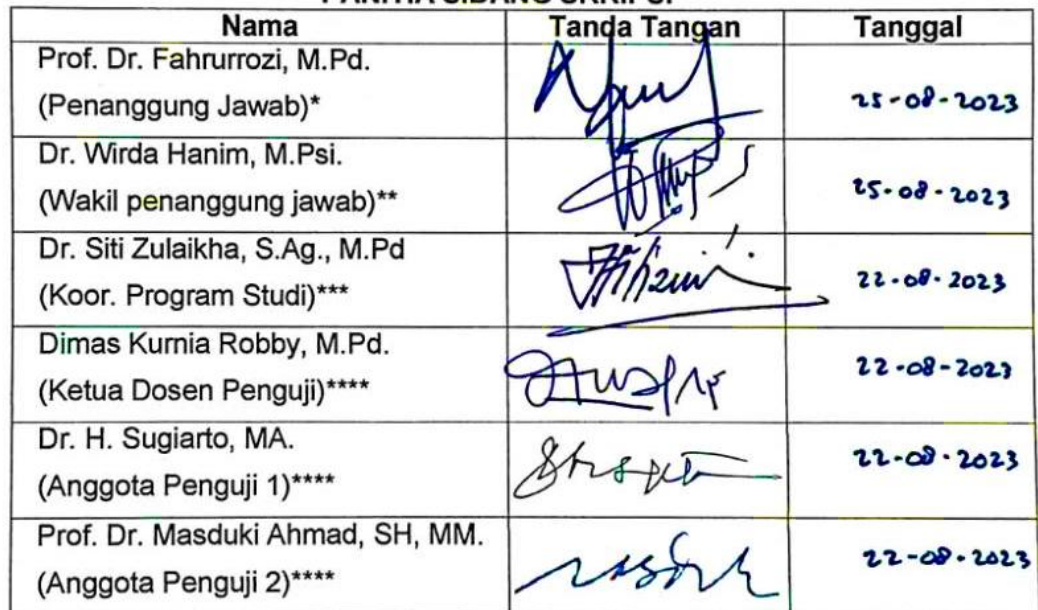 PANITIA SIDANG SKRIPSI
Nama Tanda Tangan Tanggal
Prof. Dr. Fahrurrozi, M.Pd.
(Penanggung Jawab)* 25-08-2023
Dr. Wirda Hanim, M.Psi.
(Wakil penanggung jawab)** 25-08-2023
Dr. Siti Zulaikha, S.Ag., M.Pd
(Koor. Program Studi)*** 22-08-2023
Dimas Kurnia Robby, M.Pd.
(Ketua Dosen Penguji)**** 22-08-2023
Dr. H. Sugiarto, MA.
(Anggota Penguji 1)**** 22-08-2023
Prof. Dr. Masduki Ahmad, SH, MM.
(Anggota Penguji 2)**** 22-08-2023